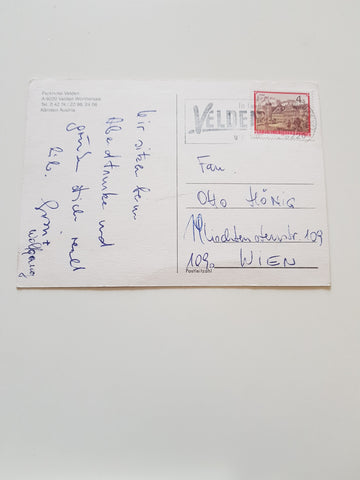 Parkhotel Velden
A-9220 Velden Wörthersee
Kärnten Austria
Wir sitzen beim
Abendtrunke und
grüßen Dich recht
lieb.
Wolfgang
VELDEN
4
Fam.
Otto König
Liechtensteinstr 109
1090 WIEN
Postleitzahl